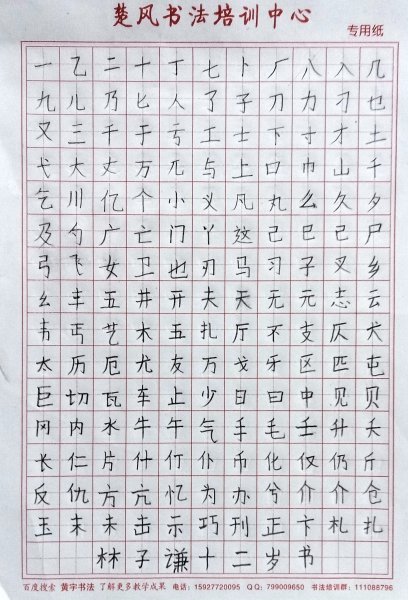 楚风书法培训中心
专用纸
一乙二十丁七卜厂八入几
九儿乃匕人了子刀力刁也
又三干于亏工士下寸才土
弋大丈万兀与上口巾山千
乞川亿个小义凡丸么久夕
及勺广亡门丫这己巳己尸
弓飞女卫也刃马习子叉乡
幺丰五井开夫天无元志云
韦丐艺木五扎厅不支仄犬
太历厄尤友万戈牙区匹屯
巨切瓦车止少日曰中见贝
冈内水牛午气手毛壬升夭
长仁片什仃仆币化仅仍斤
反仇方亢忆为办兮介介仓
玉末未击示巧刊正卞札扎
林子谦十二岁书
百度搜索 黄字书法 了解更多教学成果 电话：15927720095 QQ：799009650 书法培训群：111088796